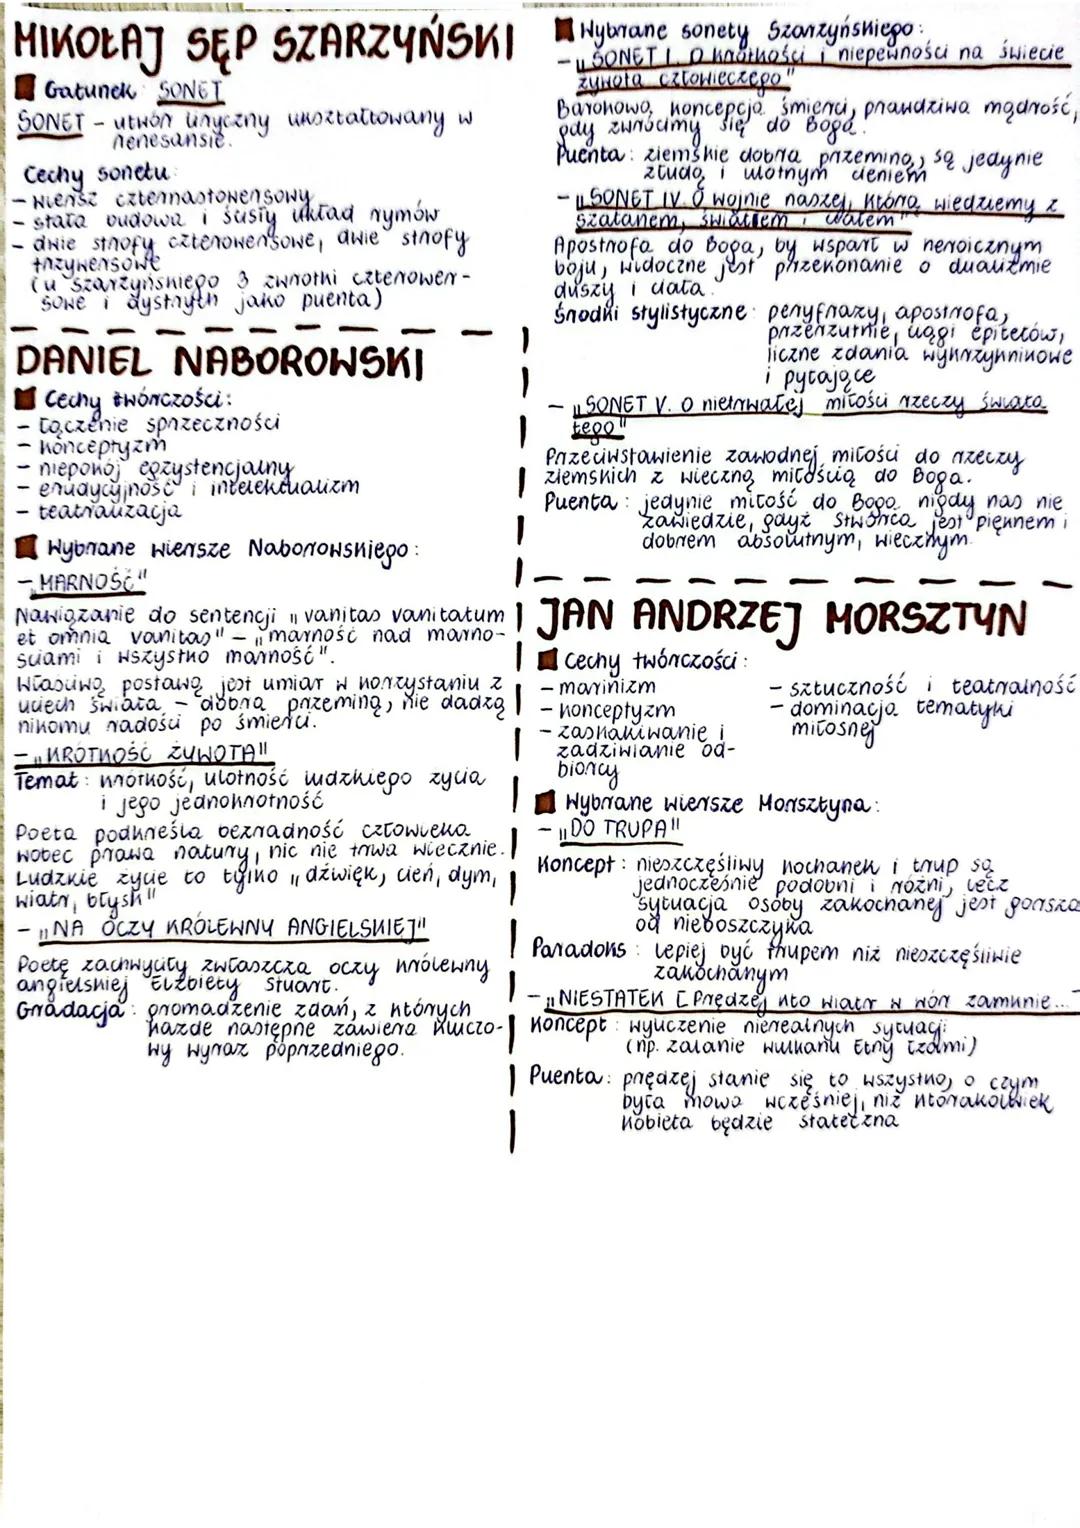 MIKOŁAJ SĘP SZARZYŃSKI
Gatunek: SONET
SONET – utwór liryczny ukształtowany w
renesansie.
Cechy sonetu:
– wiersz czternastowersowy
– stała budowa i ścisły układ rymów
– dwie strofy czterowersowe, dwie strofy
trzywersowe
(u Szarzyńskiego 3 zwrotki czterower-
sowe i dystych jako puenta)
DANIEL NABOROWSKI
Cechy twórczości:
– łączenie sprzeczności
– konceptyzm
– niepokój egzystencjalny
– erudycyjność i intelektualizm
– teatralizacja
Wybrane wiersze Naborowskiego:
– „MARNOŚĆ"
Nawiązanie do sentencji „vanitas vanitatum
et omnia vanitas" – „marność nad marno-
ściami i wszystko marność".
Właściwą postawą jest umiar w korzystaniu z
uciech świata – dobra przeminą, nie dadzą
nikomu radości po śmierci.
– „KRÓTKOŚĆ ŻYWOTA"
Temat: krótkość, ulotność ludzkiego życia
i jego jednokrotność
Poeta podkreśla bezradność człowieka
wobec prawa natury, nic nie trwa wiecznie.
Ludzkie życie to tylko „dźwięk, cień, dym,
wiatr, błysk"
– „NA OCZY KRÓLEWNY ANGIELSKIEJ"
Poetę zachwyciły zwłaszcza oczy królewny
angielskiej Elżbiety Stuart.
Gradacja: gromadzenie zdań, z których
każde następne zawiera kluczo-
wy wyraz poprzedniego.
Wybrane sonety Szarzyńskiego:
– „SONET I. O krótkości i niepewności na świecie
żywota człowieczego"
Barokową koncepcja śmierci, prawdziwa mądrość,
gdy zwrócimy się do Boga.
Puenta: ziemskie dobra przeminą, są jedynie
złudą i ulotnym cieniem
– „SONET IV. O wojnie naszej, którą wiedziemy z
szatanem, światem i ciałem"
Apostrofa do Boga, by wsparł w heroicznym
boju, widoczne jest przekonanie o dualizmie
duszy i ciała.
Środki stylistyczne: peryfrazy, apostrofa,
przerzutnie, ciągi epitetów,
liczne zdania wykrzyknikowe
i pytające
– „SONET V. O nietrwałej miłości rzeczy świata
tego"
Przeciwstawienie zawodnej miłości do rzeczy
ziemskich z wieczną miłością do Boga.
Puenta: jedynie miłość do Boga nigdy nas nie
zawiedzie, gdyż Stwórca jest pięknem i
dobrem absolutnym, wiecznym.
JAN ANDRZEJ MORSZTYN
Cechy twórczości:
– marinizm
– konceptyzm
– zaskakiwanie i
zadziwianie od-
biorcy
– sztuczność i teatralność
– dominacja tematyki
miłosnej
Wybrane wiersze Morsztyna:
– „DO TRUPA"
Koncept: nieszczęśliwy kochanek i trup są
jednocześnie podobni i różni, lecz
sytuacja osoby zakochanej jest gorsza
od nieboszczyka
Paradoks: lepiej być trupem niż nieszczęśliwie
zakochanym
– „NIESTATEK [Prędzej kto wiatr w wór zamknie...
Koncept: wyliczenie nierealnych sytuacji
(np. zalanie wulkanu Etny łzami)
Puenta: prędzej stanie się to wszystko, o czym
była mowa wcześniej, niż którakolwiek
kobieta będzie stateczna